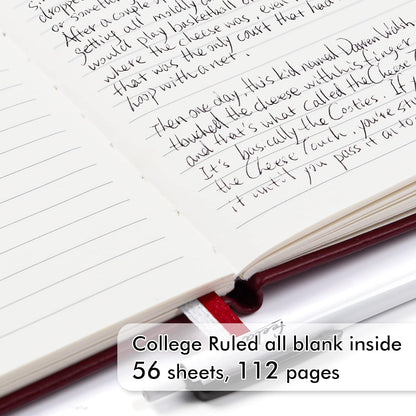 dropped
or something
After a couple
getting all moldy a
would play basketball o
where the cheese was, ever
that was the only court that had
hoop with a net.
Then one day, this kid named Darren Wals
touched the cheese with his finger,
and that's what called the Cheese
It's basically the Cooties. If
the Cheese Touch, you're st
it until you pass it on to so
College Ruled all blank inside
56 sheets, 112 pages